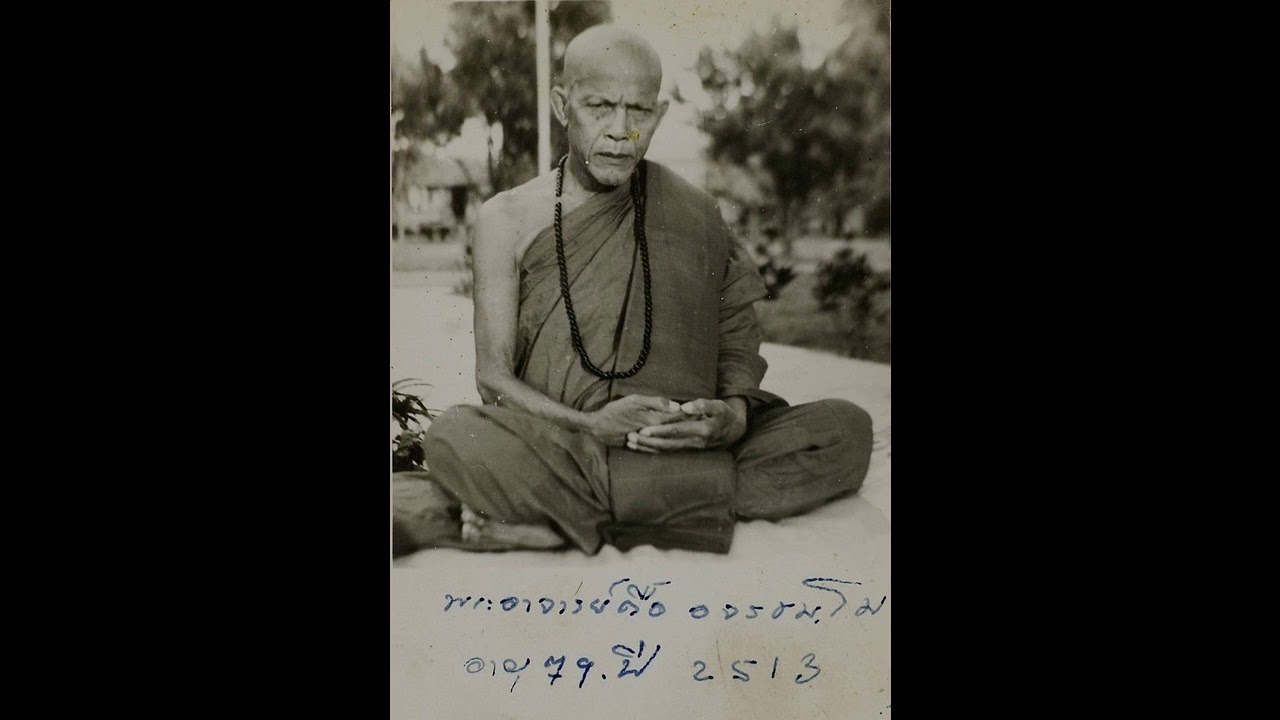 พระอาจารย์ตื้อ อจรธมฺโม
อายุ 79.ปี 2513